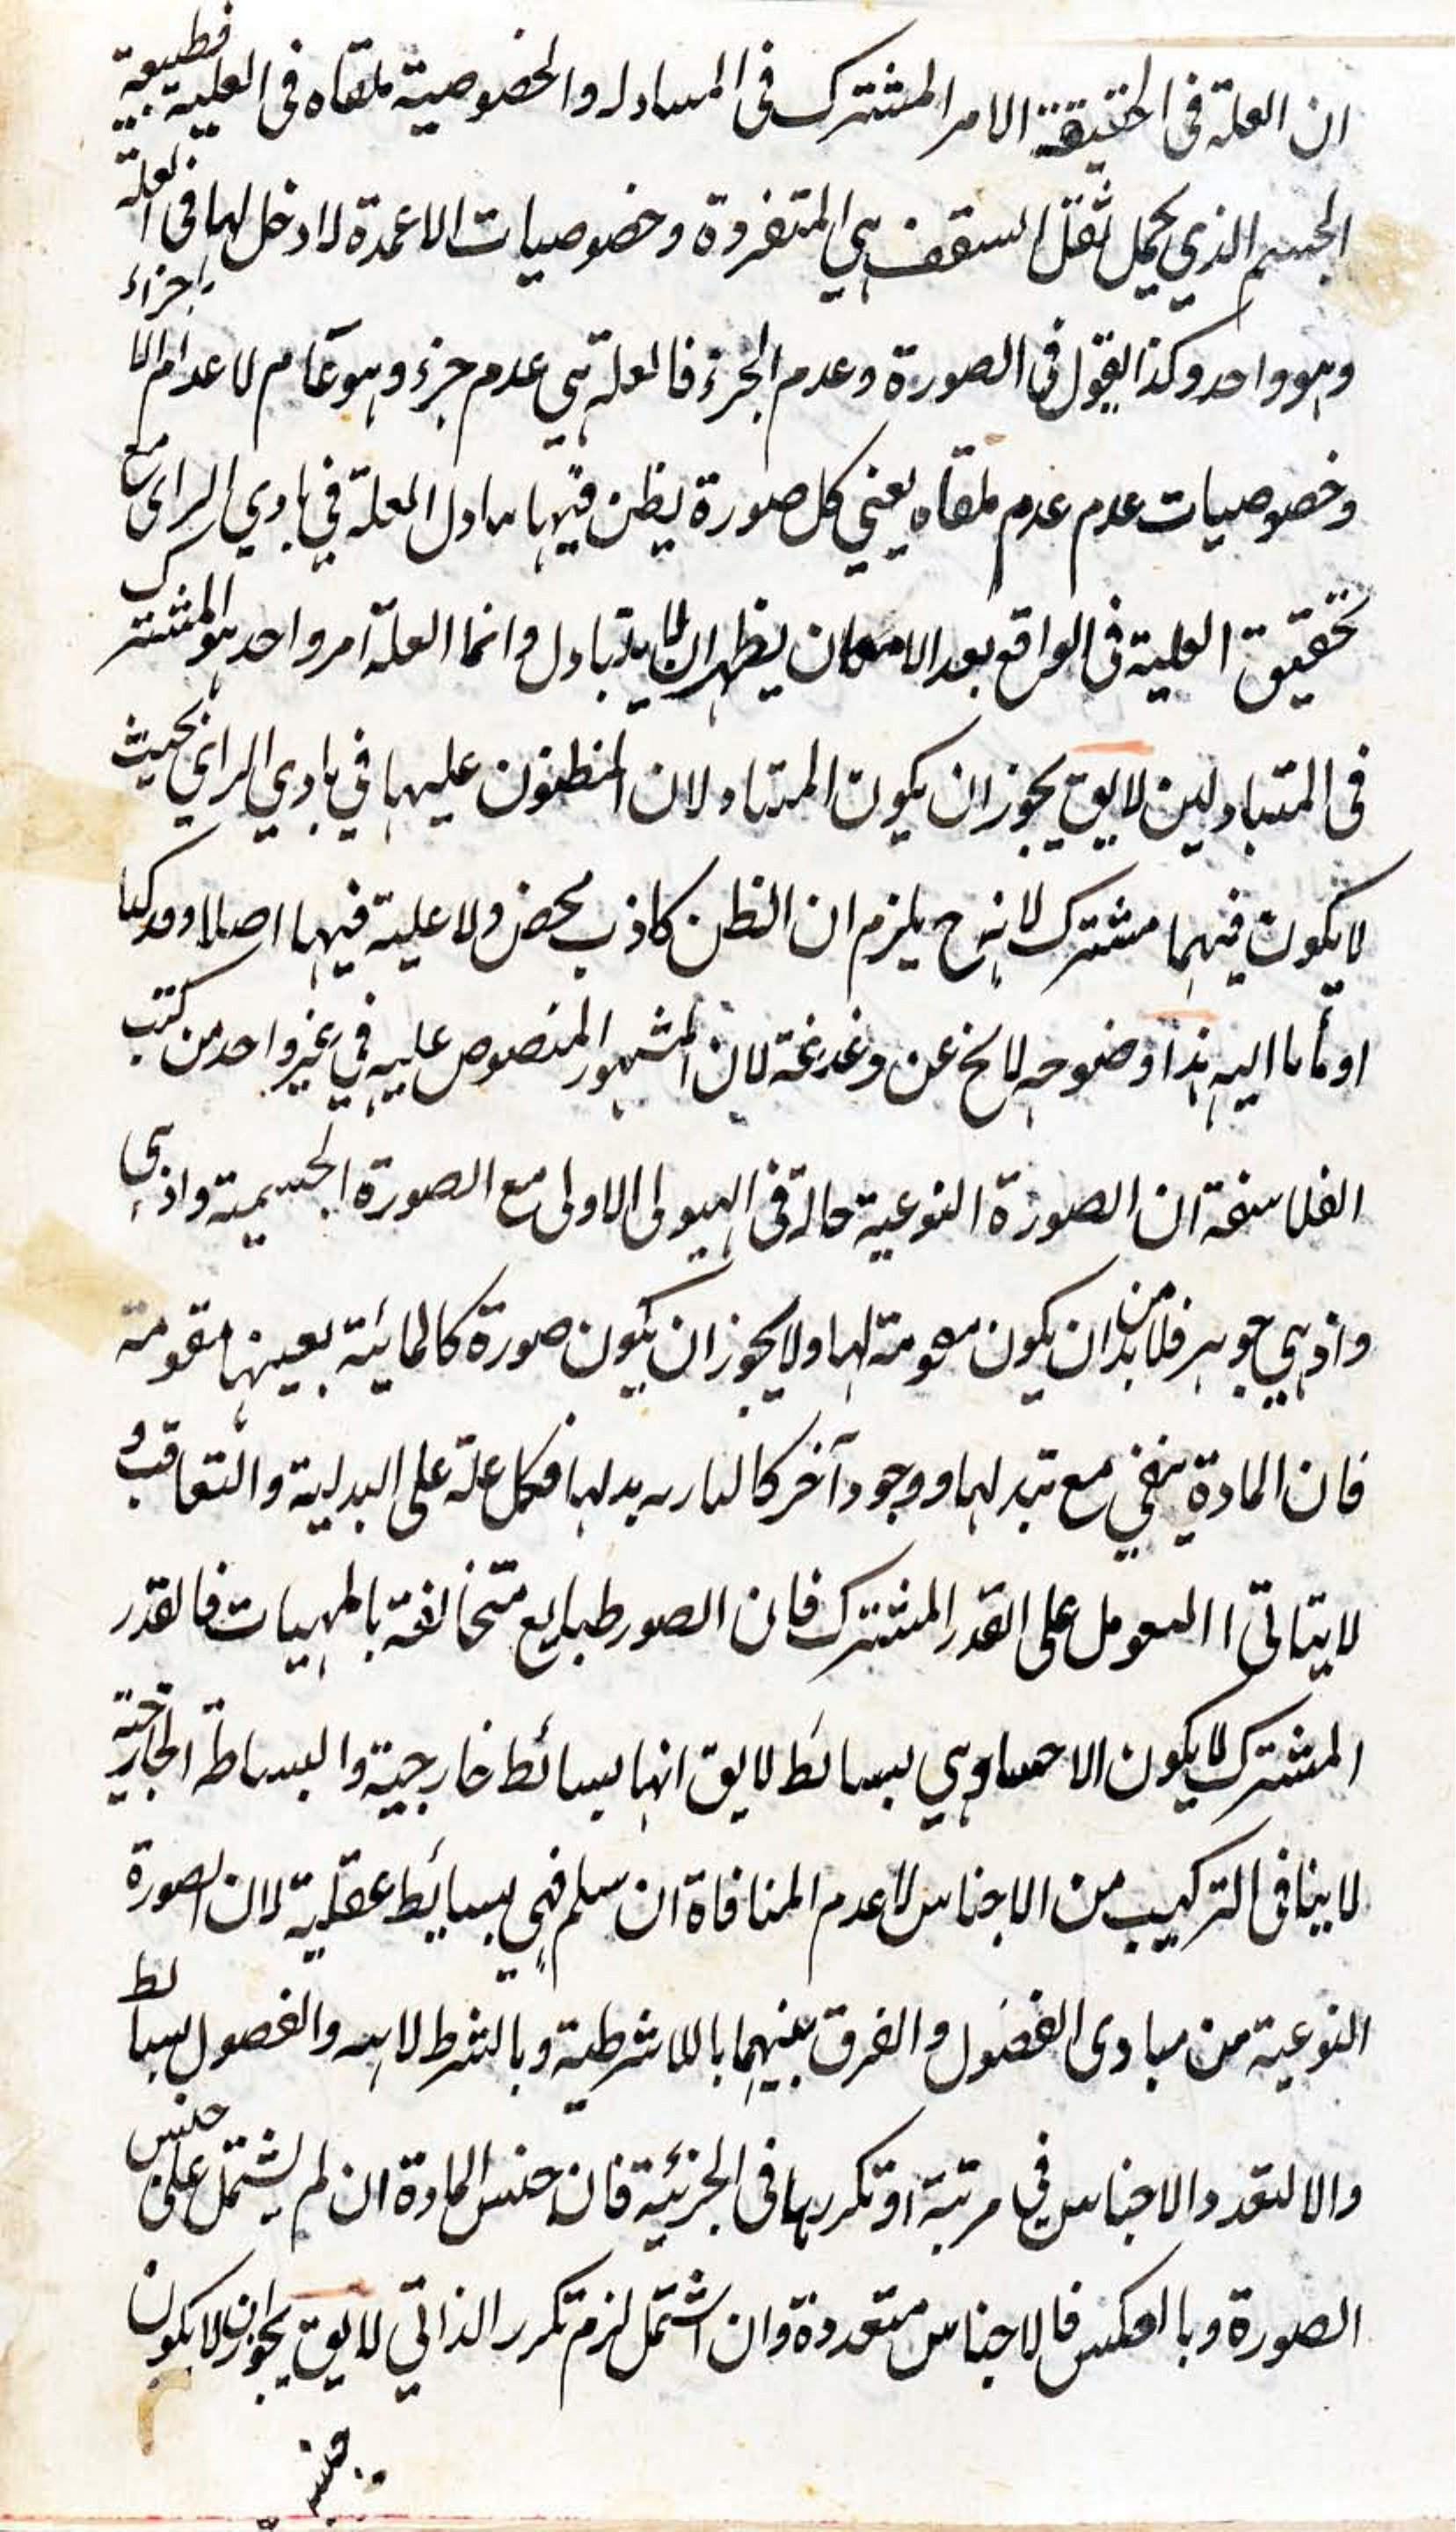 ان العلة فى الحقيقة الامر المشترك فى المبادله والخصوصية ملغاه فى العلية فطبيعة
الجسم الذي يحمل ثقل السقف هي المتفردة وخصوصيات الاعمدة لا دخل لها فى العلة
وهو واحد وكذا القول فى الصورة وعدم الجزء فالعلة هي عدم جزء وهو عام لاعدام الاجزاء
وخصوصيات عدم عدم ملغاه يعني كل صورة يظن فيها تبادل العلة في بادي الراى مع
تحقيق العلية فى الواقع بعد الامعان يظهر ان لا يتبادل وانما العلة امر واحد هو المشترك
فى المتبادلين لايق يجوز ان يكون المتبادلان المظنون عليهما في بادي الراي بحيث
لا يكون فيهما مشترك لانه ح يلزم ان الظن كاذب محض ولا علية فيهما اصلا وقد كنا
اومأنا اليه هذا وضوحه لايخ عن دغدغة لان المشهور المنصوص عليه في غير واحد من كتب
الفلاسفة ان الصورة النوعية حالة فى الهيولى الاولى مع الصورة الجسمية واذ هى
واذ هي جوهر فلا بد من ان يكون مقومة لها ولا يجوز ان يكون صورة كالمائية بعينها مقومة
فان المادة يبقي مع تبدلها ووجود آخر كالناريه بدلها فكل علة على البدلية والتعاقب و
لا يتاتى التعويل على القدر المشترك فان الصور طبايع متخالفة بالمهيات فالقدر
المشترك لا يكون الا جنسا وهي بسائط لايق انها بسائط خارجية والبساطة الخارجية
لا ينافى التركيب من الاجناس لا عدم المنافاة ان سلم فهي بسايط عقلية لان الصورة
النوعية من مبادى الفصول والفرق بينهما باللاشرطية وبالشرط لائيه والفصول بسائط
والا لتعدد الاجناس في مرتبة او تكررها فى الجزئية فان جنس المادة ان لم يشتمل على جنس
الصورة وبالعكس فالاجناس متعددة وان اشتمل لزم تكرر الذاتي لايق يجوز ان لا يكون
جنس